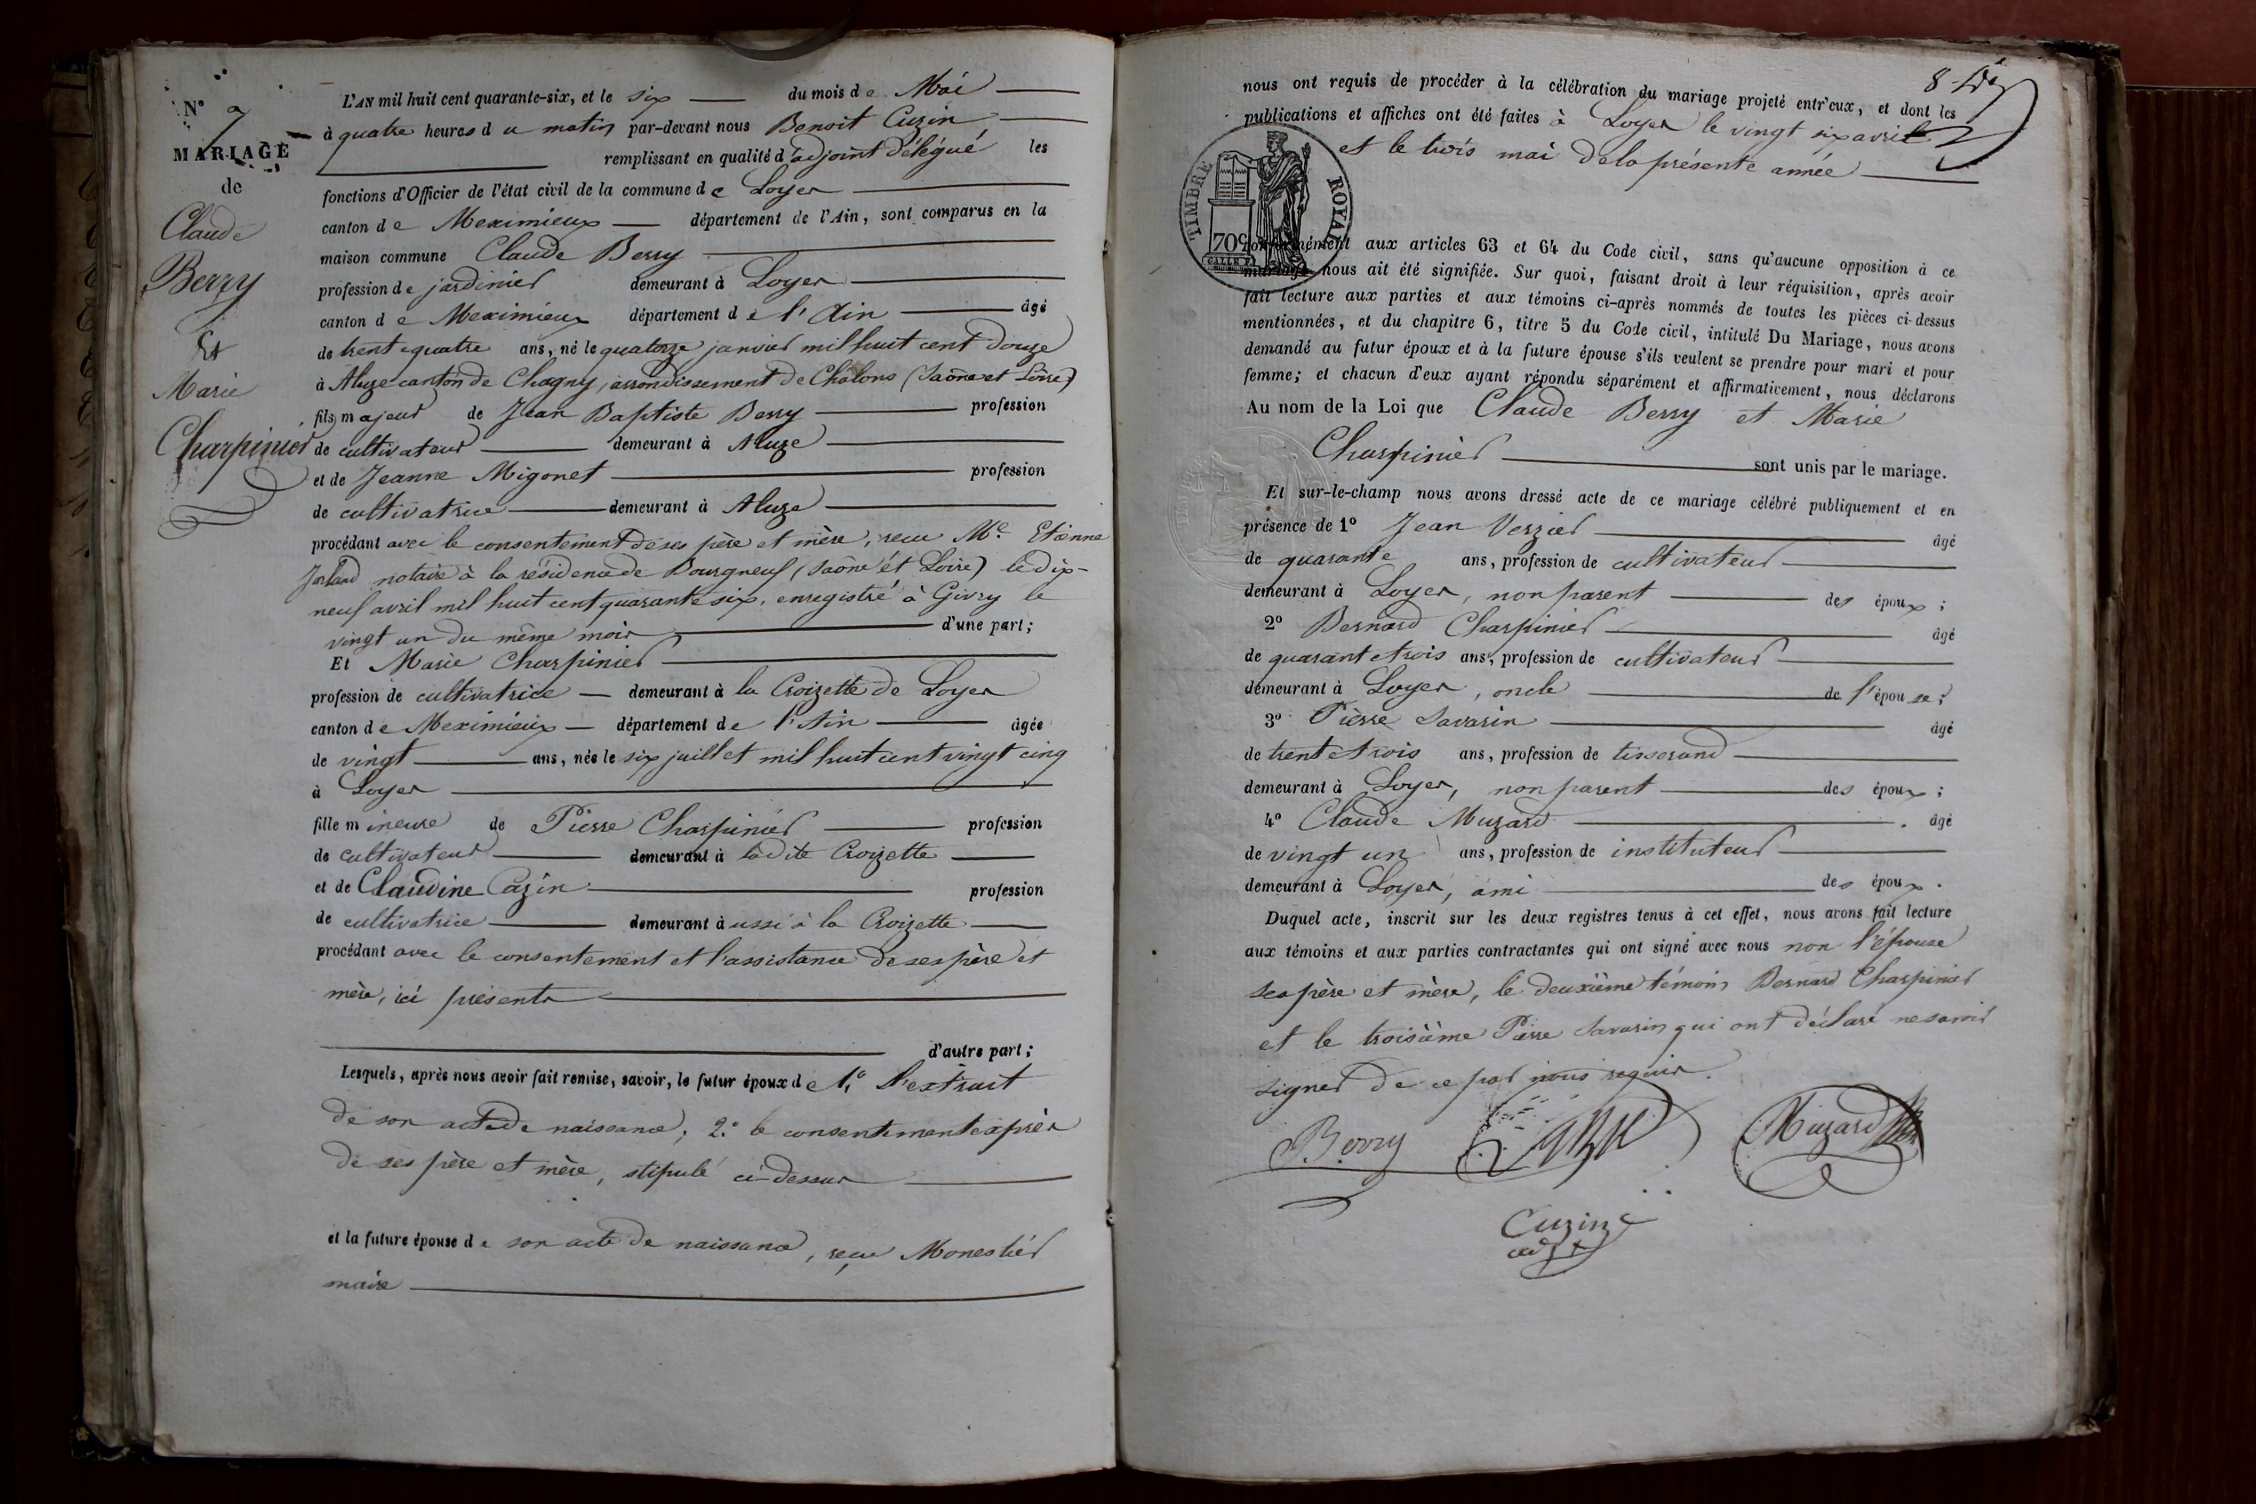 N° 7
MARIAGE
de
Claude
Berry
Et
Marie
Charpinier
L'AN mil huit cent quarante-six, et le six du mois de Mai
à quatre heures du matin par-devant nous Benoit Cuzin
remplissant en qualité d'adjoint délégué les
fonctions d'Officier de l'état civil de la commune de Loyes
canton de Meximieux département de l'Ain, sont comparus en la
maison commune Claude Berry
profession de jardinier demeurant à Loyes
canton de Meximieux département de l'Ain âgé
de trente quatre ans, né le quatorze janvier mil huit cent douze
à Aluze canton de Chagny, arrondissement de Châlons (Saône et Loire)
fils majeur de Jean Baptiste Berry profession
de cultivateur demeurant à Aluze
et de Jeanne Migonet profession
de cultivatrice demeurant à Aluze
procédant avec le consentement de ses père et mère, reçu Me. Etienne
notaire à la résidence de Bourgneuf (Saône et Loire) le dix-
neuf avril mil huit cent quarante six, enregistré à Givry le
vingt un du même mois d'une part;
Et Marie Charpinier
profession de cultivatrice demeurant à la Croizette de Loyes
canton de Meximieux département de l'Ain âgée
de vingt ans, née le six juillet mil huit cent vingt cinq
à Loyes
fille mineure de Pierre Charpinier profession
de cultivateur demeurant à ladite Croizette
et de Claudine Cazin profession
de cultivatrice demeurant aussi à la Croizette
procédant avec le consentement et l'assistance de ses père et
mère, ici présents
d'autre part;
Lesquels, après nous avoir fait remise, savoir, le futur époux de 1.° l'extrait
de son acte de naissance; 2.° le consentement exprès
de ses père et mère, stipulé ci-dessus
et la future épouse de son acte de naissance, reçu Monestier
maire
8
nous ont requis de procéder à la célébration du mariage projeté entr'eux, et dont les
publications et affiches ont été faites à Loyes le vingt six avril
et le trois mai de la présente année
TIMBRE ROYAL
70c
conformément aux articles 63 et 64 du Code civil, sans qu'aucune opposition à ce
mariage nous ait été signifiée. Sur quoi, faisant droit à leur réquisition, après avoir
fait lecture aux parties et aux témoins ci-après nommés de toutes les pièces ci-dessus
mentionnées, et du chapitre 6, titre 5 du Code civil, intitulé Du Mariage, nous avons
demandé au futur époux et à la future épouse s'ils veulent se prendre pour mari et pour
femme; et chacun d'eux ayant répondu séparément et affirmativement, nous déclarons
Au nom de la Loi que Claude Berry et Marie
Charpinier sont unis par le mariage.
Et sur-le-champ nous avons dressé acte de ce mariage célébré publiquement et en
présence de 1° Jean Verzier âgé
de quarante ans, profession de cultivateur
demeurant à Loyes, non parent des époux;
2° Bernard Charpinier âgé
de quarante trois ans, profession de cultivateur
demeurant à Loyes, oncle de l'épouse;
3° Pierre Savarin âgé
de trente trois ans, profession de tisserand
demeurant à Loyes, non parent des époux;
4° Claude Muzard âgé
de vingt un ans, profession de instituteur
demeurant à Loyes, ami des époux.
Duquel acte, inscrit sur les deux registres tenus à cet effet, nous avons fait lecture
aux témoins et aux parties contractantes qui ont signé avec nous non l'épouse
ses père et mère, le deuxième témoin Bernard Charpinier
et le troisième Pierre Savarin qui ont déclaré ne savoir
signer de ce par nous requis.
Berry
Muzard
Cuzin
adjt